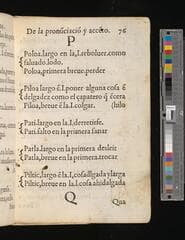 De la pronũciació y accẽto. 76
P
Poloa, largo en la o, I, reboluer. como
saluado. lodo.
Poloa, primera breue. perder
Piloa largo ẽ la I. poner alguna cosa ẽ
delgadez como el çapatero q̃ cera
Piloa, breue ẽ la I. colgar. (hilo
Pati. largo en la I, derretirse.
Pati. salto en la primera sanar
Patla, largo en la primera desleir
Patla, breue en la primera. trocar
Piltic, largo en la I, cosa larga
Piltic, breue ẽ la I. cosa ahidalgada
Q
Qua